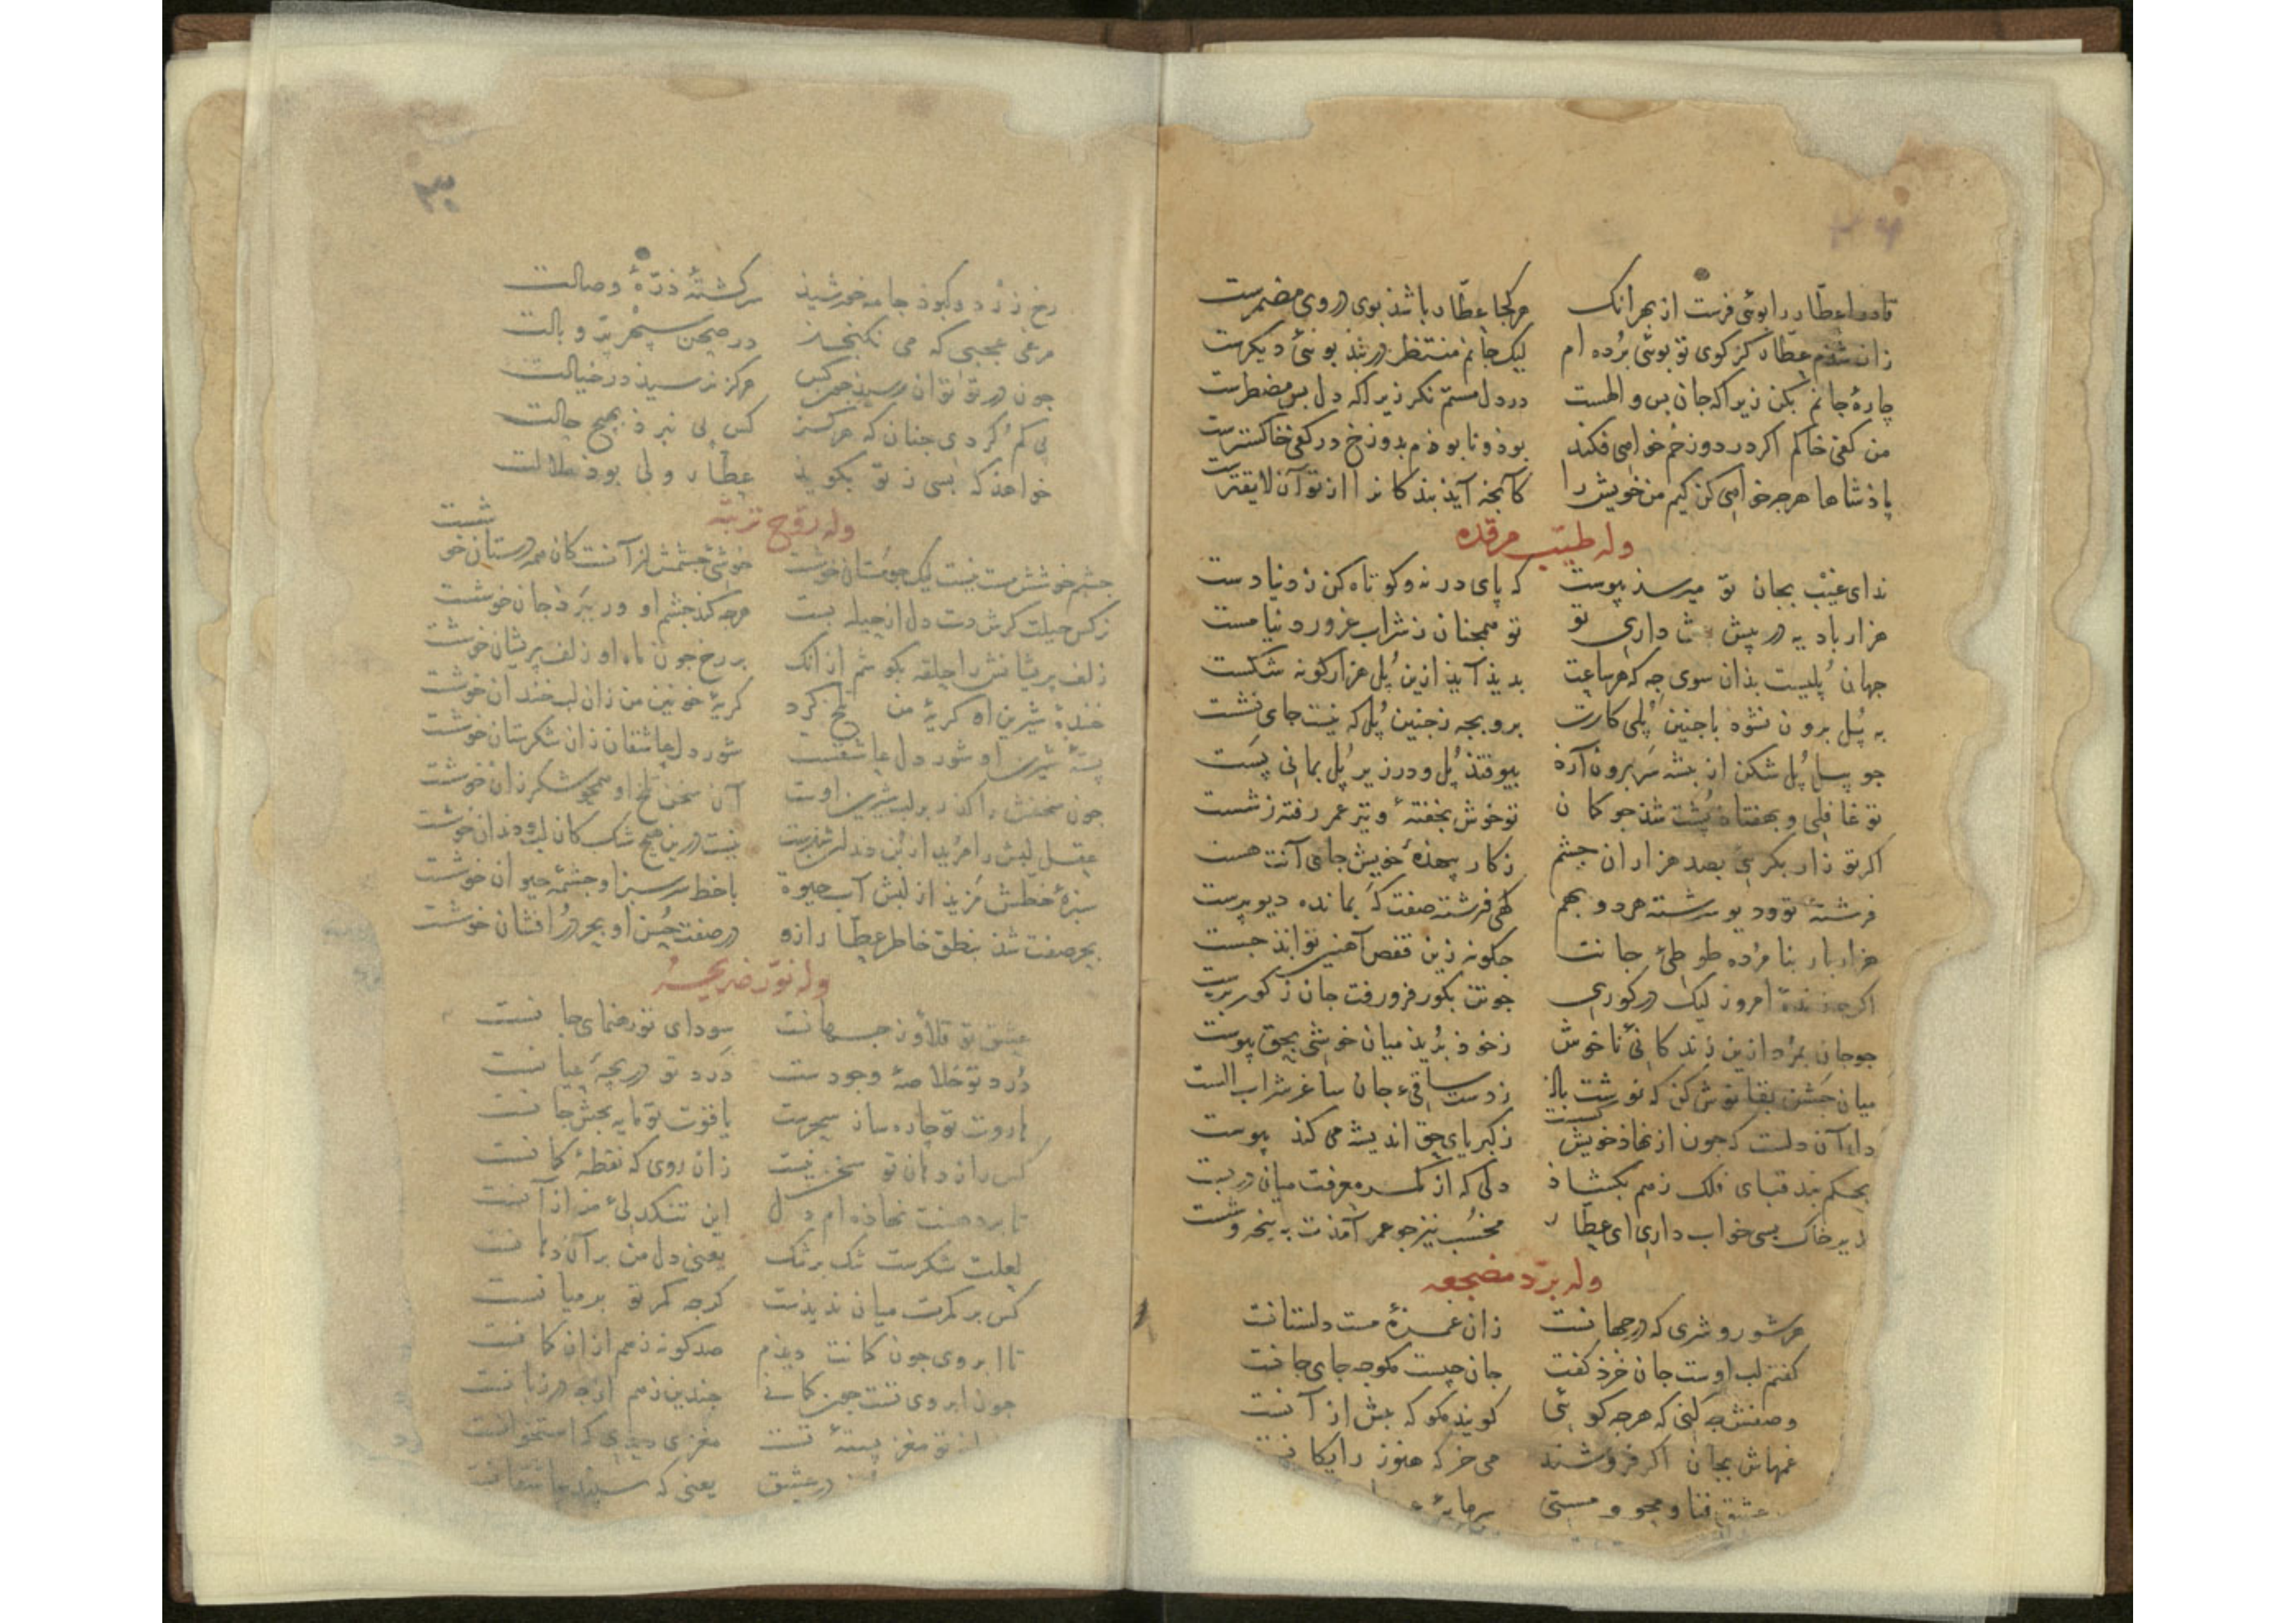 ۲۹
تا دوا عطار را بوئی فرست از بهر آنک هر کجا عطار باشذ بوی در وی مضمرست
زان شذم عطار کز کوی تو بوئی برده ام لیک جانم منتظر در بند بوئی دیکرست
چارهٔ جانم بکن زیرا که جان بس والهست در دل مستم نکر زیرا که دل بس مضطرست
من کفی خاکم اکر در دوزخم خواهی فکند بوذ و نابوذم بدوزخ در کفی خاکسترست
پاذشاها هرچه خواهی کن کیم من خویش را کآنچه آیذ بندکانرا از تو آن لایقترست
وله طیب مرقده
ندای غیب بجان تو میرسذ پیوست که پای در نه و کوتاه کن ز دنیا دست
هزار بادیه در پیش داری تو تو همچنان ز شراب غرور دنیا مست
جهان پلیست بذان سوی جه که هر ساعت بدیذ آیذ ازین پل هزار کونه شکست
به پل برون نشوذ باجنین پلی کارت برو بجه زجنین پل که نیست جای نشست
جو سیل پل شکن از بیشه سر برون آرذ بیوفتذ پل و در زیر پل بمانی پست
تو غافلی و بهفتاذ پشت شذ جو کمان تو خوش بخفتهٔ و تیر عمر رفته ز شست
اکر تو زار بکریی بصد هزاران جشم ز کار بیهذهٔ خویش جای آنت هست
فرشتهٔ تو و دیو سرشته هر دو بهم کهی فرشته صفت که بمانده دیوپرست
هزار بار بنا مرده طوطی جانت جکونه زین قفص آهنین توانذ جست
اکرچه زندهٔ امروز لیک در کوری جو تنت بکور فرو رفت جان ز کور برست
جو جان بمرد ازین زندکانی ناخوش ز خوذ بریذ میان خوشی بحق پیوست
میان جشن بقا نوش کن که نوشت باذ ز دست ساقیء جان ساغر شراب الست
دل آن دلست که جون از نهاذ خویش کسست ز کبریای حق اندیشه می کند پیوست
بحکم بند قبای فلک ز هم بکشاذ دلی که از کمر معرفت میان در بست
بزیر خاک بسی خواب داری ای عطار مخسب نیز جو عمر آمذت به نیمه و شست
وله برد مضجعه
هر شور و شری که در جهانست زان غمزهٔ مست دلستانست
کفتم لب اوست جان خرد کفت جان چیست مکو چه جای جانست
وصفش جه کنی که هرچه کوئی کویند مکو که بیش از آنست
غمهاش بجان اکر فروشند می خر که هنوز رایکانست
عشق فنا و محو و مستی سرمایهٔ
۳۰
رخ زرد و کبوذ جامه خورشیذ سرکشتهٔ ذرهٔ وصالت
مرغی عجبی که می نکنجذ در صحن سپهر پر و بالت
جون در تو توان رسیذ جون کس هرکز نرسیذ در خیالت
پی کم کردی جنان که هرکز کس پی نبرذ بهیچ حالت
خواهذ که بسی ز تو بکویذ عطار ولی بوذ ملالت
وله روح تربته
جشم خوشش مست نیست لیک جو مستان خوشست خوشئ جشمش از آنست کان همه دستان خوشست
نرکس حیلت کرش دست دل از حیله بست هرجه کند جشم او ور ببرذ جان خوشست
زلف پریشانش را حلقه بکوشم از آنک بر رخ جون ماه او زلف پریشان خوشست
خندهٔ شیرین او کریهٔ من تلخ کرد کریهٔ خونین من زان لب خندان خوشست
پستهٔ شیرین او شور دل عاشقست شور دل عاشقان زان شکرستان خوشست
جون سخنش را کذر بر لب شیرین اوست آن سخن تلخ او همجو شکر زان خوشست
عقل لبش را مرید از بن دندان شذست نیست درین هیچ شک کان لب و دندان خوشست
سبزهٔ خطش مزیذ از لبش آب حیوة با خط سرسبز او چشمهٔ حیوان خوشست
بحر صفت شذ بنطق خاطر عطار ازو در صفت حسن او بحر درافشان خوشست
وله نور ضریحه
عشق تو قلاوز جهانست سودای تو رهنمای جانست
درد تو خلاصهٔ وجودست درد تو دریچهٔ عیانست
هاروت تو جاره ساز سحرست یاقوت تو مایه بخش جانست
کس را ز دهان تو سخن نیست زان روی که نقطهٔ کمانست
تا بر دهنت نهاذه ام دل این تنکدلی من از آنست
لعلت شکرست تنک بر تنک یعنی دل من بر آن دهانست
کس بر کمرت میان ندیذست کرجه کمر تو بر میانست
تا ابروی جون کمانت دیذم صدکونه زهم از ان کمانست
جون ابروی تست جون کمانی جندین زهم ازجه در زبانست
تو مغز پستهٔ تست مغزی دیدی که استخوانست
در عشق یعنی که سپند عاشقانست